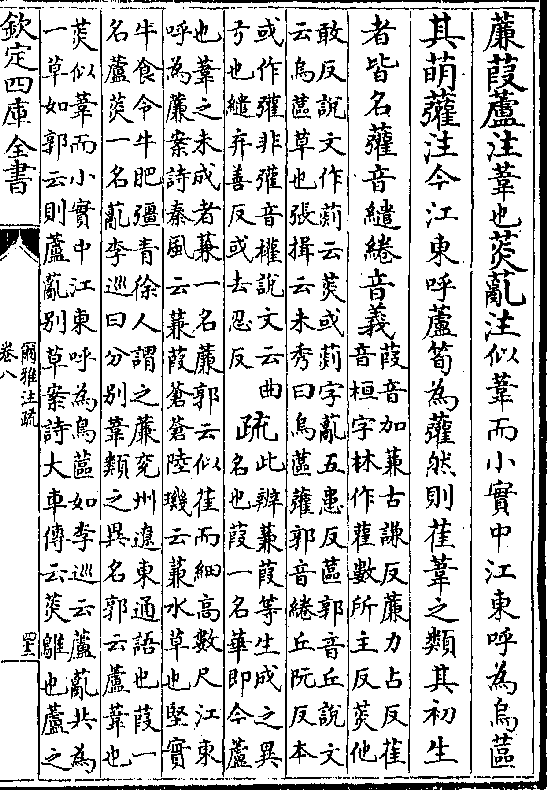 蒹葭蘆注葦也菼薍注似葦而小實中江東呼為烏蓲
其萌虇注今江東呼蘆筍為虇然則萑葦之類其初生
者皆名虇音繾綣音義
葭音加蒹古謙反薕力占反萑
音桓字林作雚數所主反菼他
敢反説文作䓤云菼或䓤字薍五患反蓲郭音丘説文
云烏蓲草也張揖云未秀曰烏蓲虇郭音綣丘阮反本
或作虇非虇音權説文云曲
亐也繾弃善反或去忍反
疏
此辨蒹葭等生成之異
名也葭一名華即今蘆
也葦之未成者蒹一名薕郭云似萑而細高數尺江東
呼為薕案詩秦風云蒹葭蒼蒼陸璣云蒹水草也堅實
牛食令牛肥彊青徐人謂之薕兖州遼東通語也葭一
名蘆菼一名薍李巡曰分别葦類之異名郭云蘆葦也
菼似葦而小實中江東呼為烏蓲如李巡云蘆薍共為
一草如郭云則蘆薍别草案詩大車傳云菼鵻也蘆之
欽定四庫全書
爾雅注疏
卷八